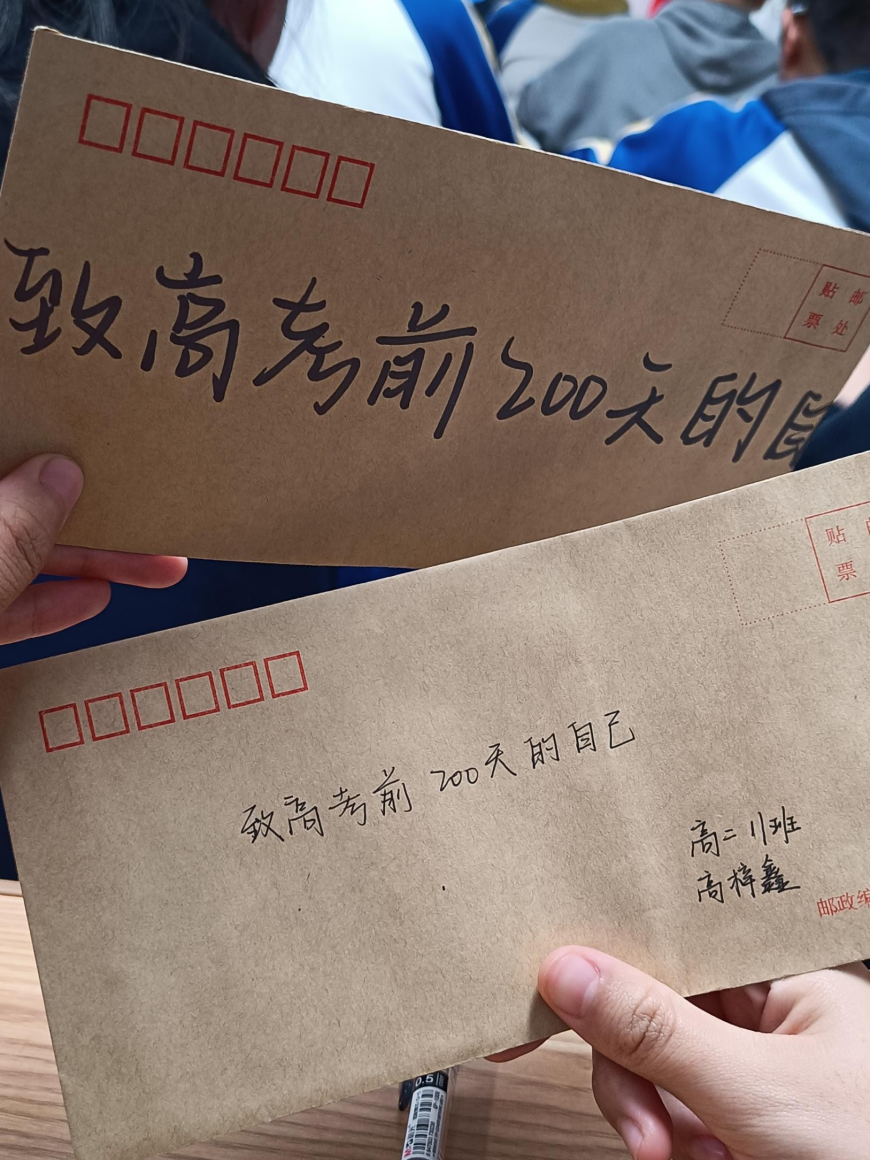 贴 邮
票 处
致高考前200天的自
贴
票
致高考前200天的自己
高二11班
高梓鑫
邮政编
0.5